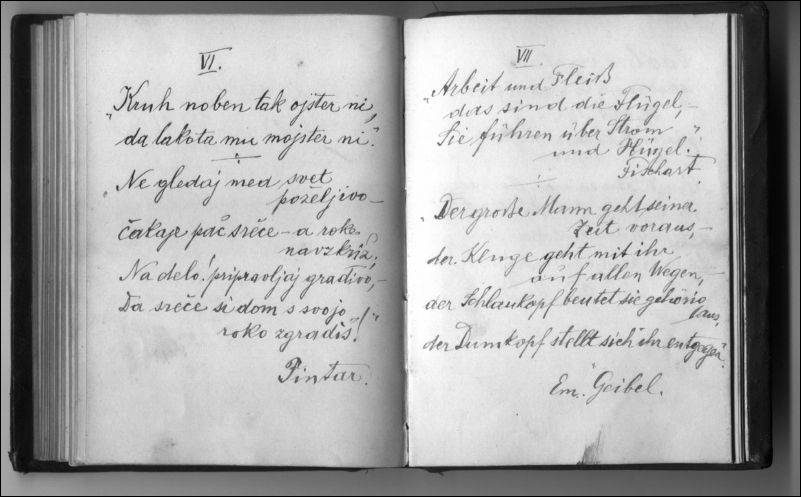 VI.
„Kruh noben tak ojster ni,
da lakota mu mojster ni.“
Ne gledaj med svet
poželjivo –
čakaje pač sreče – a roke
navzkriž;
Na delo! pripravljaj gradivo, –
Da sreče si dom s svojo
roko zgradiš! –“
Pintar.
VII.
„Arbeit und Fleiß
das sind die Flügel, –
Sie führen über Strom
und Hügel.“
Fischart.
„Der große Mann geht seiner
Zeit voraus, –
der Kluge geht mit ihr
auf allen Wegen, –
der Schlaukopf beutet sie gehörig
aus,
der Dumkopf stellt sich ihr entgegen“.
Em. Geibel.